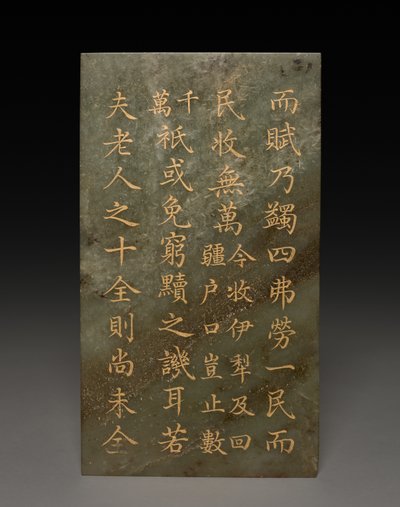 而賦乃蠲四弗勞一民而
民收無萬
今收伊犁及回
疆户口豈止數
千
萬
祇或免窮黷之譏耳若
夫老人之十全則尚未全